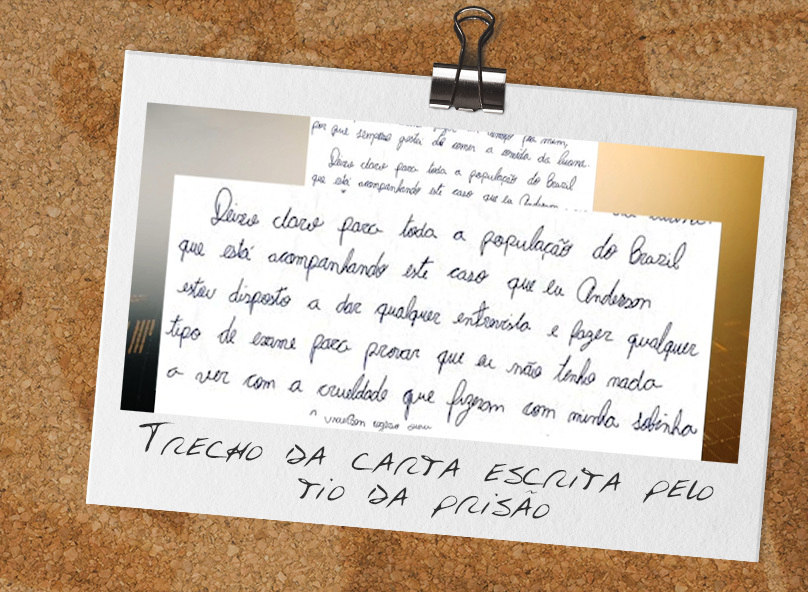 por que sempre gostei de comer a comida da luana.
Deixo claro para toda a população do Brazil
que está acompanhando este caso que eu Anderson
Deixo claro para toda a população do Brazil
que está acompanhando este caso que eu Anderson
estou disposto a dar qualquer entrevista e fazer qualquer
tipo de exame para provar que eu não tenho nada
a ver com a crueldade que fizeram com minha sobinha
TRECHO DA CARTA ESCRITA PELO
TIO DA PRISÃO